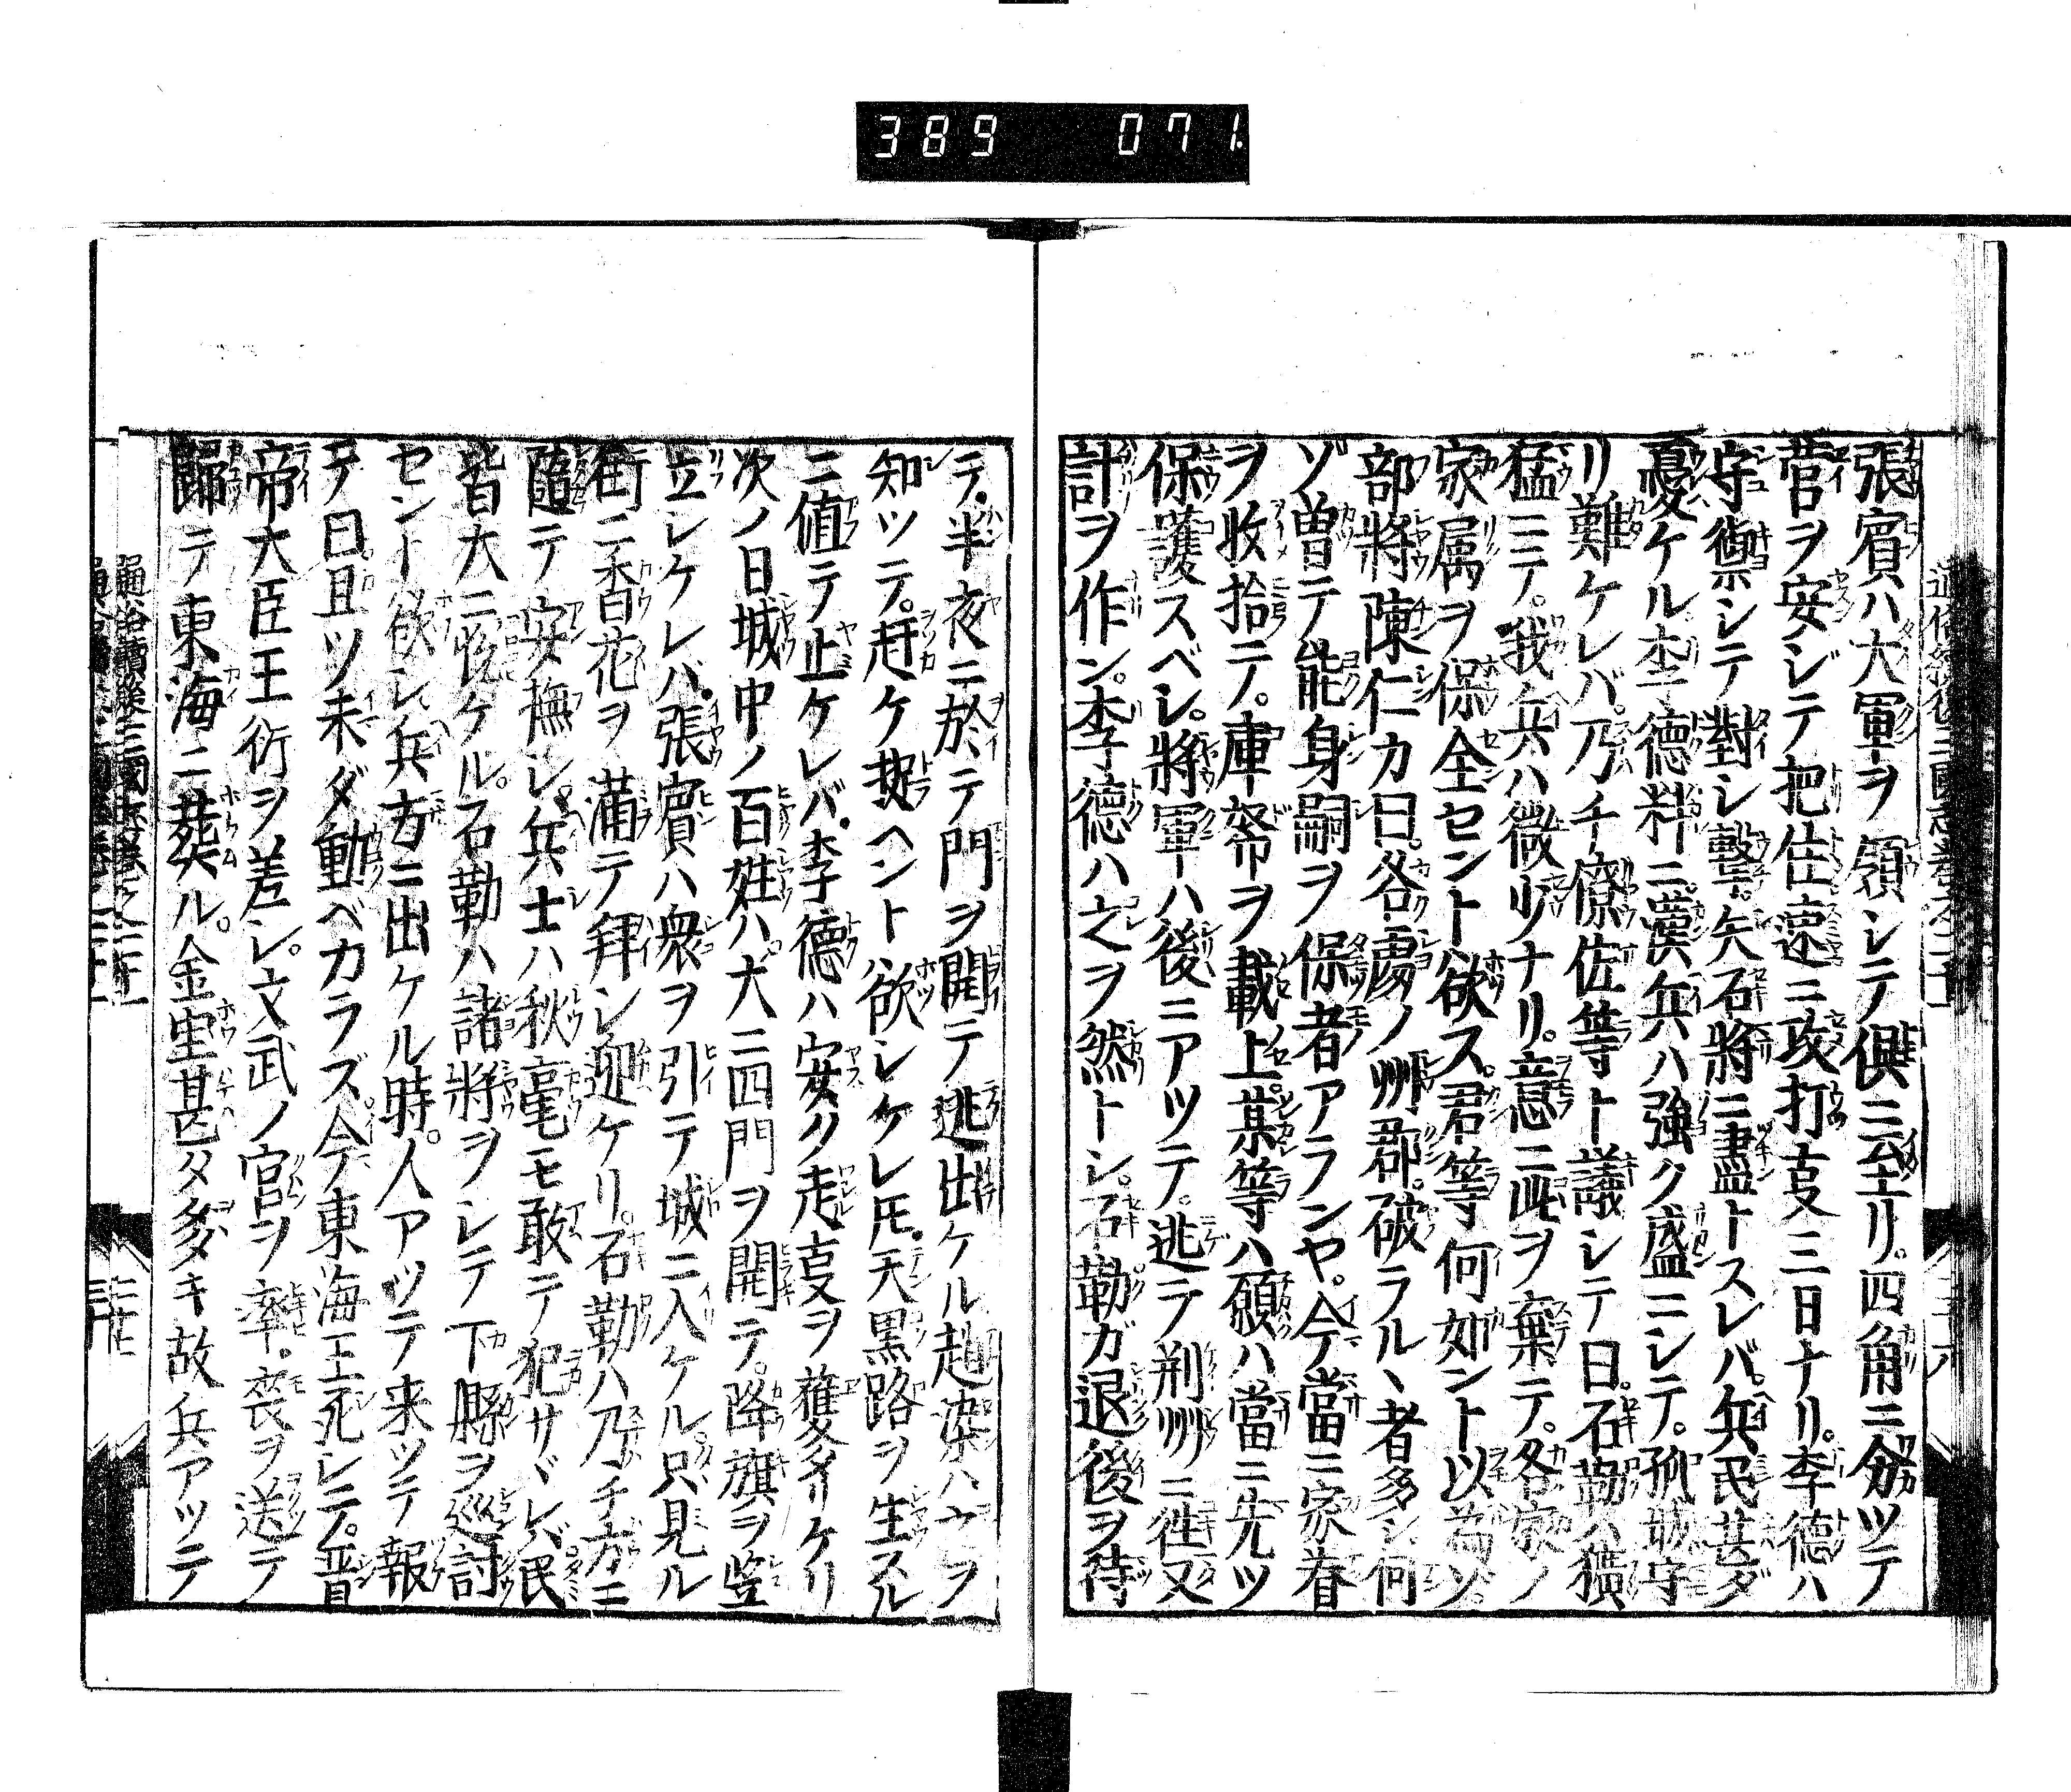 389 071
張賓ハ大軍ヲ領シテ倶ニ至リ。四角ニ分ツテ
營ヲ安ジテ把住速ニ攻打支三日ナリ。李德ハ
守禦シテ對シ擊。矢石將ニ盡トスレバ。兵民甚ダ
憂ケル李德料ニ漢兵ハ強ク盛ニシテ。孤城守
リ難ケレバ。乃チ僚佐等ト議シテ曰。石勒ハ獷
猛ニテ。我兵ハ微少ナリ。意ニ此ヲ棄テ。各家ノ
家属ヲ保全セント欲ス。君等何如ント以為ソ。
部將陳仁カ曰。各處ノ州郡。破ラル丶者多シ何
ゾ曽テ能身嗣ヲ保者アランヤ。今當ニ家眷
ヲ收拾テ。庫帑ヲ載上某等ハ願ハ當ニ先ツ
保護スベシ。將軍ハ後ニアツテ。逃テ荊州ニ徃又
計ヲ作ン。李德ハ之ヲ然トシ。石勒ガ退後ヲ待
テ。半夜ニ於テ門ヲ開テ逃出ケル趙染ハ
知ツテ。赶ケ捉ヘント欲シケレ𪜈。天黒路ヲ生スル
ニ値テ止ケレバ。李德ハ安ク走叓ヲ獲タリケリ
次ノ日城中ノ百姓ハ。大ニ四門ヲ開テ。降旗ヲ竪
立シケレバ。張賓ハ衆ヲ引テ城ニ入ケル。只見ル
街ニ香花ヲ満テ拜シ迎ケリ。石勒ハ乃チ
隨テ安撫シ。兵士ハ秋毫モ敢テ犯サヾレバ民
皆大ニ悦ケル。石勒ハ諸將ヲシテ下縣ヲ巡討
セント欲シ兵方ニ出ケル時。人アツテ来ツテ報
テ曰且ツ未ダ動ベカラズ今東海王死シテ。晋
帝大臣王衍ヲ差シ。文武ノ官ヲ率。喪ヲ送テ
歸テ東海ニ葬ル。金宝甚タ多キ故兵アツテ